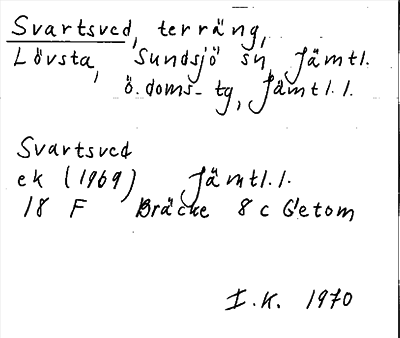 Svartsved, terräng,
Lövsta, Sundsjö sn, Jämtl.
ö. doms- tg, Jämtl. l.
Svartsved
ek (1969) Jämtl. l.
18 F Bräcke 8 c Getom
I. K. 1970